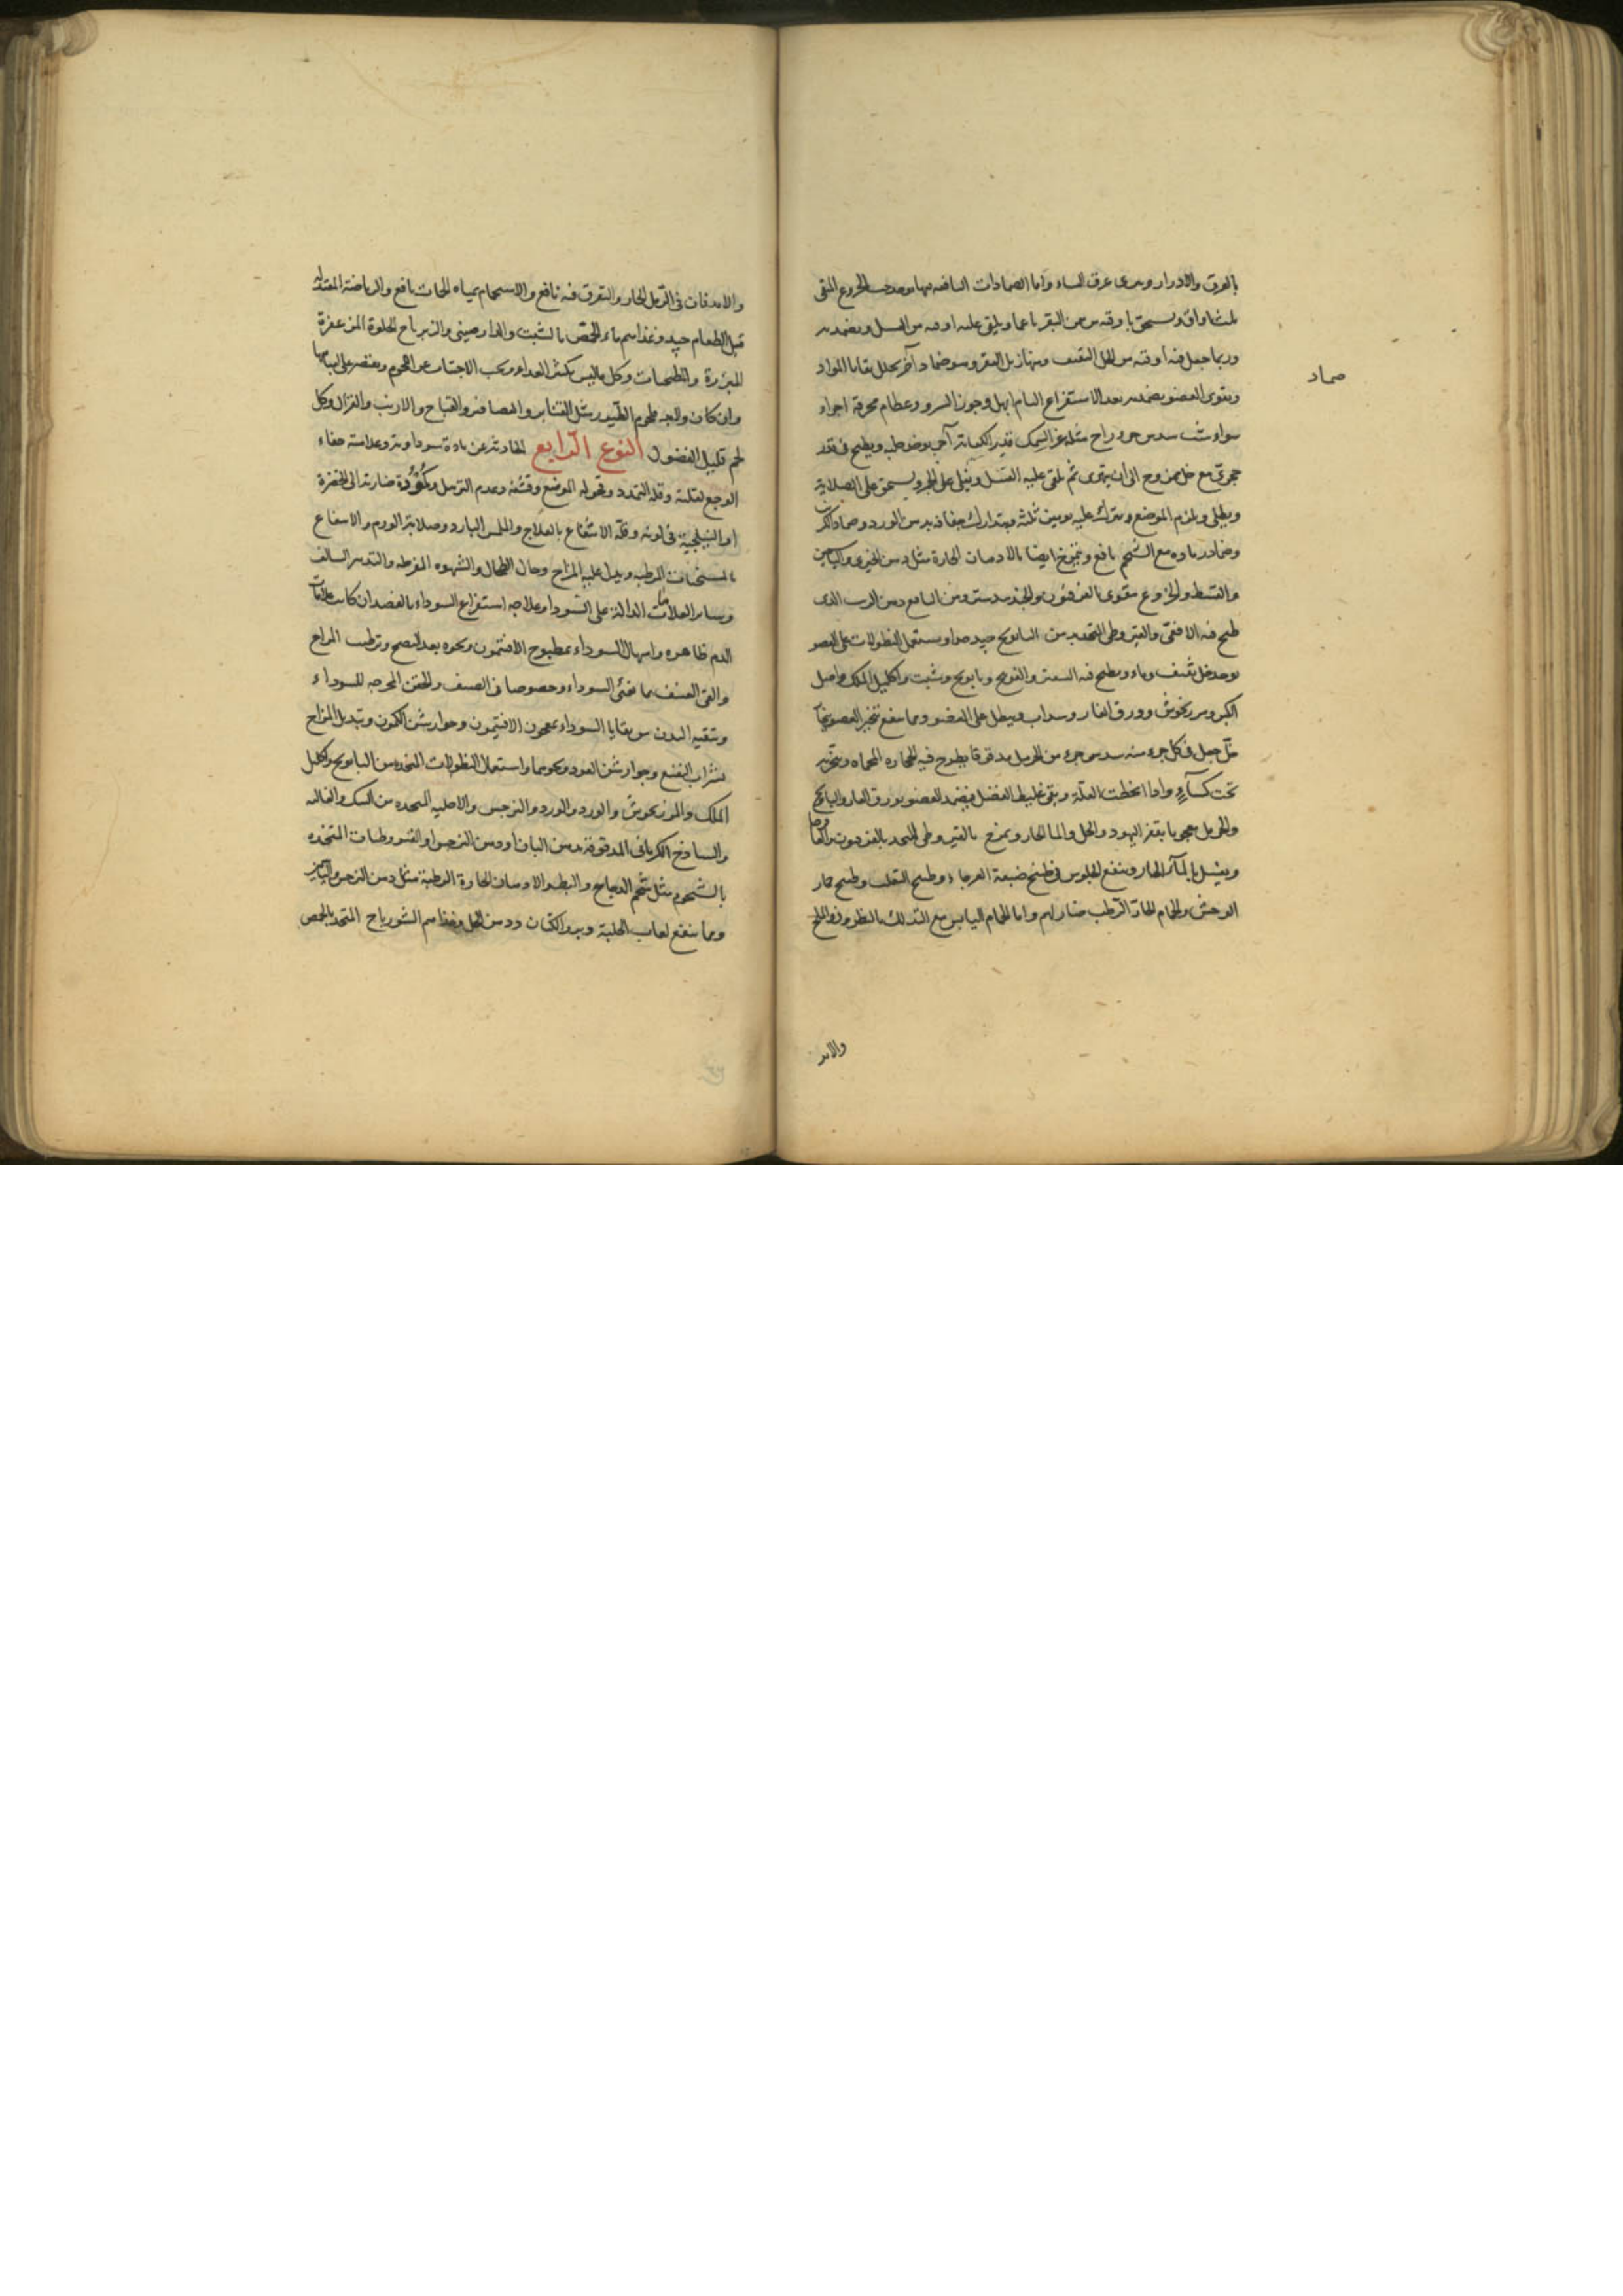 بالعرق والادرار وسرى عرق النساء واما الضمادات النافعه منها يوخذ حب الخروع المنقى
ثلث اواق ويسحق باوقيه من سمن البقر ناعما ويلقى عليه اوقيه من العسل ويضمد به
وربما جعل فيه اوقيه من الخل الثقيف ومنها زبل البقر وسو ضماد آخر يحلل بقايا المواد
ضماد
ويقوى العضو يضمد به بعد الاستفراغ التام ابهل وجوز السرو وعطام محرقة اجزاء
سواء شب سدس جزء
حجرى مع خل ممزوج الى أن يتهرى ثم يلقى عليه العسل ويغلى على الجمر ويسحق على الصلاية
ويطلى ويلزم الموضع ويترك عليه يومين ثلثة فيتدارك جفافه بدهن الورد وضماد الكرنب
وضماد رماده مع الشحم نافع وتمريخ ايضا بالادهان الحارة مثل دهن الخيرى والياسمين
والقسط والخروع مقوى بالفرفيون والجندبيدستر ومن النافع دهن الزيت الذى
طبخ فيه الافعى والقيروطى المتخذ بدهن البابونج جيد جدا ويستعمل النطولات على العضو
يوخذ خل ثقيف وماء ويطبخ فيه السعتر والفوتنج وبابونج وشبت واكليل الملك واصل
الكبر ومرزنجوش وورق الغار وسداب وينطل على العضو ومما ينفع تبخير العضو بخار
خل جعل فى كل جزء منه سدس جزء من الحرمل مدقوقا يطرح فيه الحجاره المحماه ويبخر به
تحت كسآءٍ واذا انحطت العلة وبقى غليظ الفضل فيضمد العضو بورق الغار والبابونج
والحرمل معجونا بقفر اليهود والخل والماء الحار ويمرخ بالقيروطى المتخذ بالفرفيون
ويغسل بالمآء الحار وينفع الجلوس فى طبيخ ضبعة العرجاء وطبيخ الثعلب وطبيخ حمار
الوحش والحمام الحارّ الرّطب ضارلهم واما الحمام اليابس مع التدلك بالنطرون والملح
والاند
والاندفان فى الرّمل الحار والتعرق فيه نافع والاستحمام بمياه الحمات نافع والرياضة المعتدلة
قبل الطعام جيد وغذاءهم ماء الحمّص بالشبت والدارصينى والزيرباج الحلوة المزعفرة
المبزرة والمطجنات وكل ما ليس بكثير الغذاء ويجب الاجتناب عن اللحوم ويقتصر على
وان كان ولابد فلحوم الطّيور مثل القنابر والعصافير والقباج والارنب والغزال وكل
لحم قليل الفضول النوع الرّابع الحادثة عن مادة سوداوية وعلامته خفاء
الوجع لقلته وقلة التمدد وقحولة الموضع وقشفه وعدم الترهل وكمُودُة ضاربة الى الخضرة
او البنفسجية فى لونه وقلّة الانتفاع بالعلاج والملمس البارد وصلابة الورم والانتفاع
بالمسخنات الرطبه ويدل عليه المزاج وحال الطحال والشهوه المفرطه والتدبير السالف
وساير العلامات الدالة على السّوداء وعلاجه استفراغ السوداء بالفصد ان كانت علامات
الدم ظاهره واسهال السوداء بمطبوخ الافتيمون ونحوه بعد النضج وترطيب المزاج
والقئ العنيف بما يقئ السوداء وخصوصا فى الصيف والحقن المخرجه للسوداء
وتنقيه البدن من بقايا السوداء بمعجون الافتيمون وجوارشن الكمون وتبديل المزاج
بشراب النعنع وجوارشن العود ونحوهما واستعمال النطولات المتخذه من البابونج واكليل
الملك والمرزنجوش والورد والنرجس والاطليه المتخذه من السك والغاليه
والساذج الكرمانى المدقوقة بدهن البان أو دهن النرجس او القيروطيات المتخذه
بالشحوم مثل شحم الدجاج والبط والادهان الحارة الرطبة مثل دهن النرجس
ومما ينفع لعاب الحلبة وبزر الكتان ودهن الخل وغذاءهم الشورباج المتخذ بالحمص